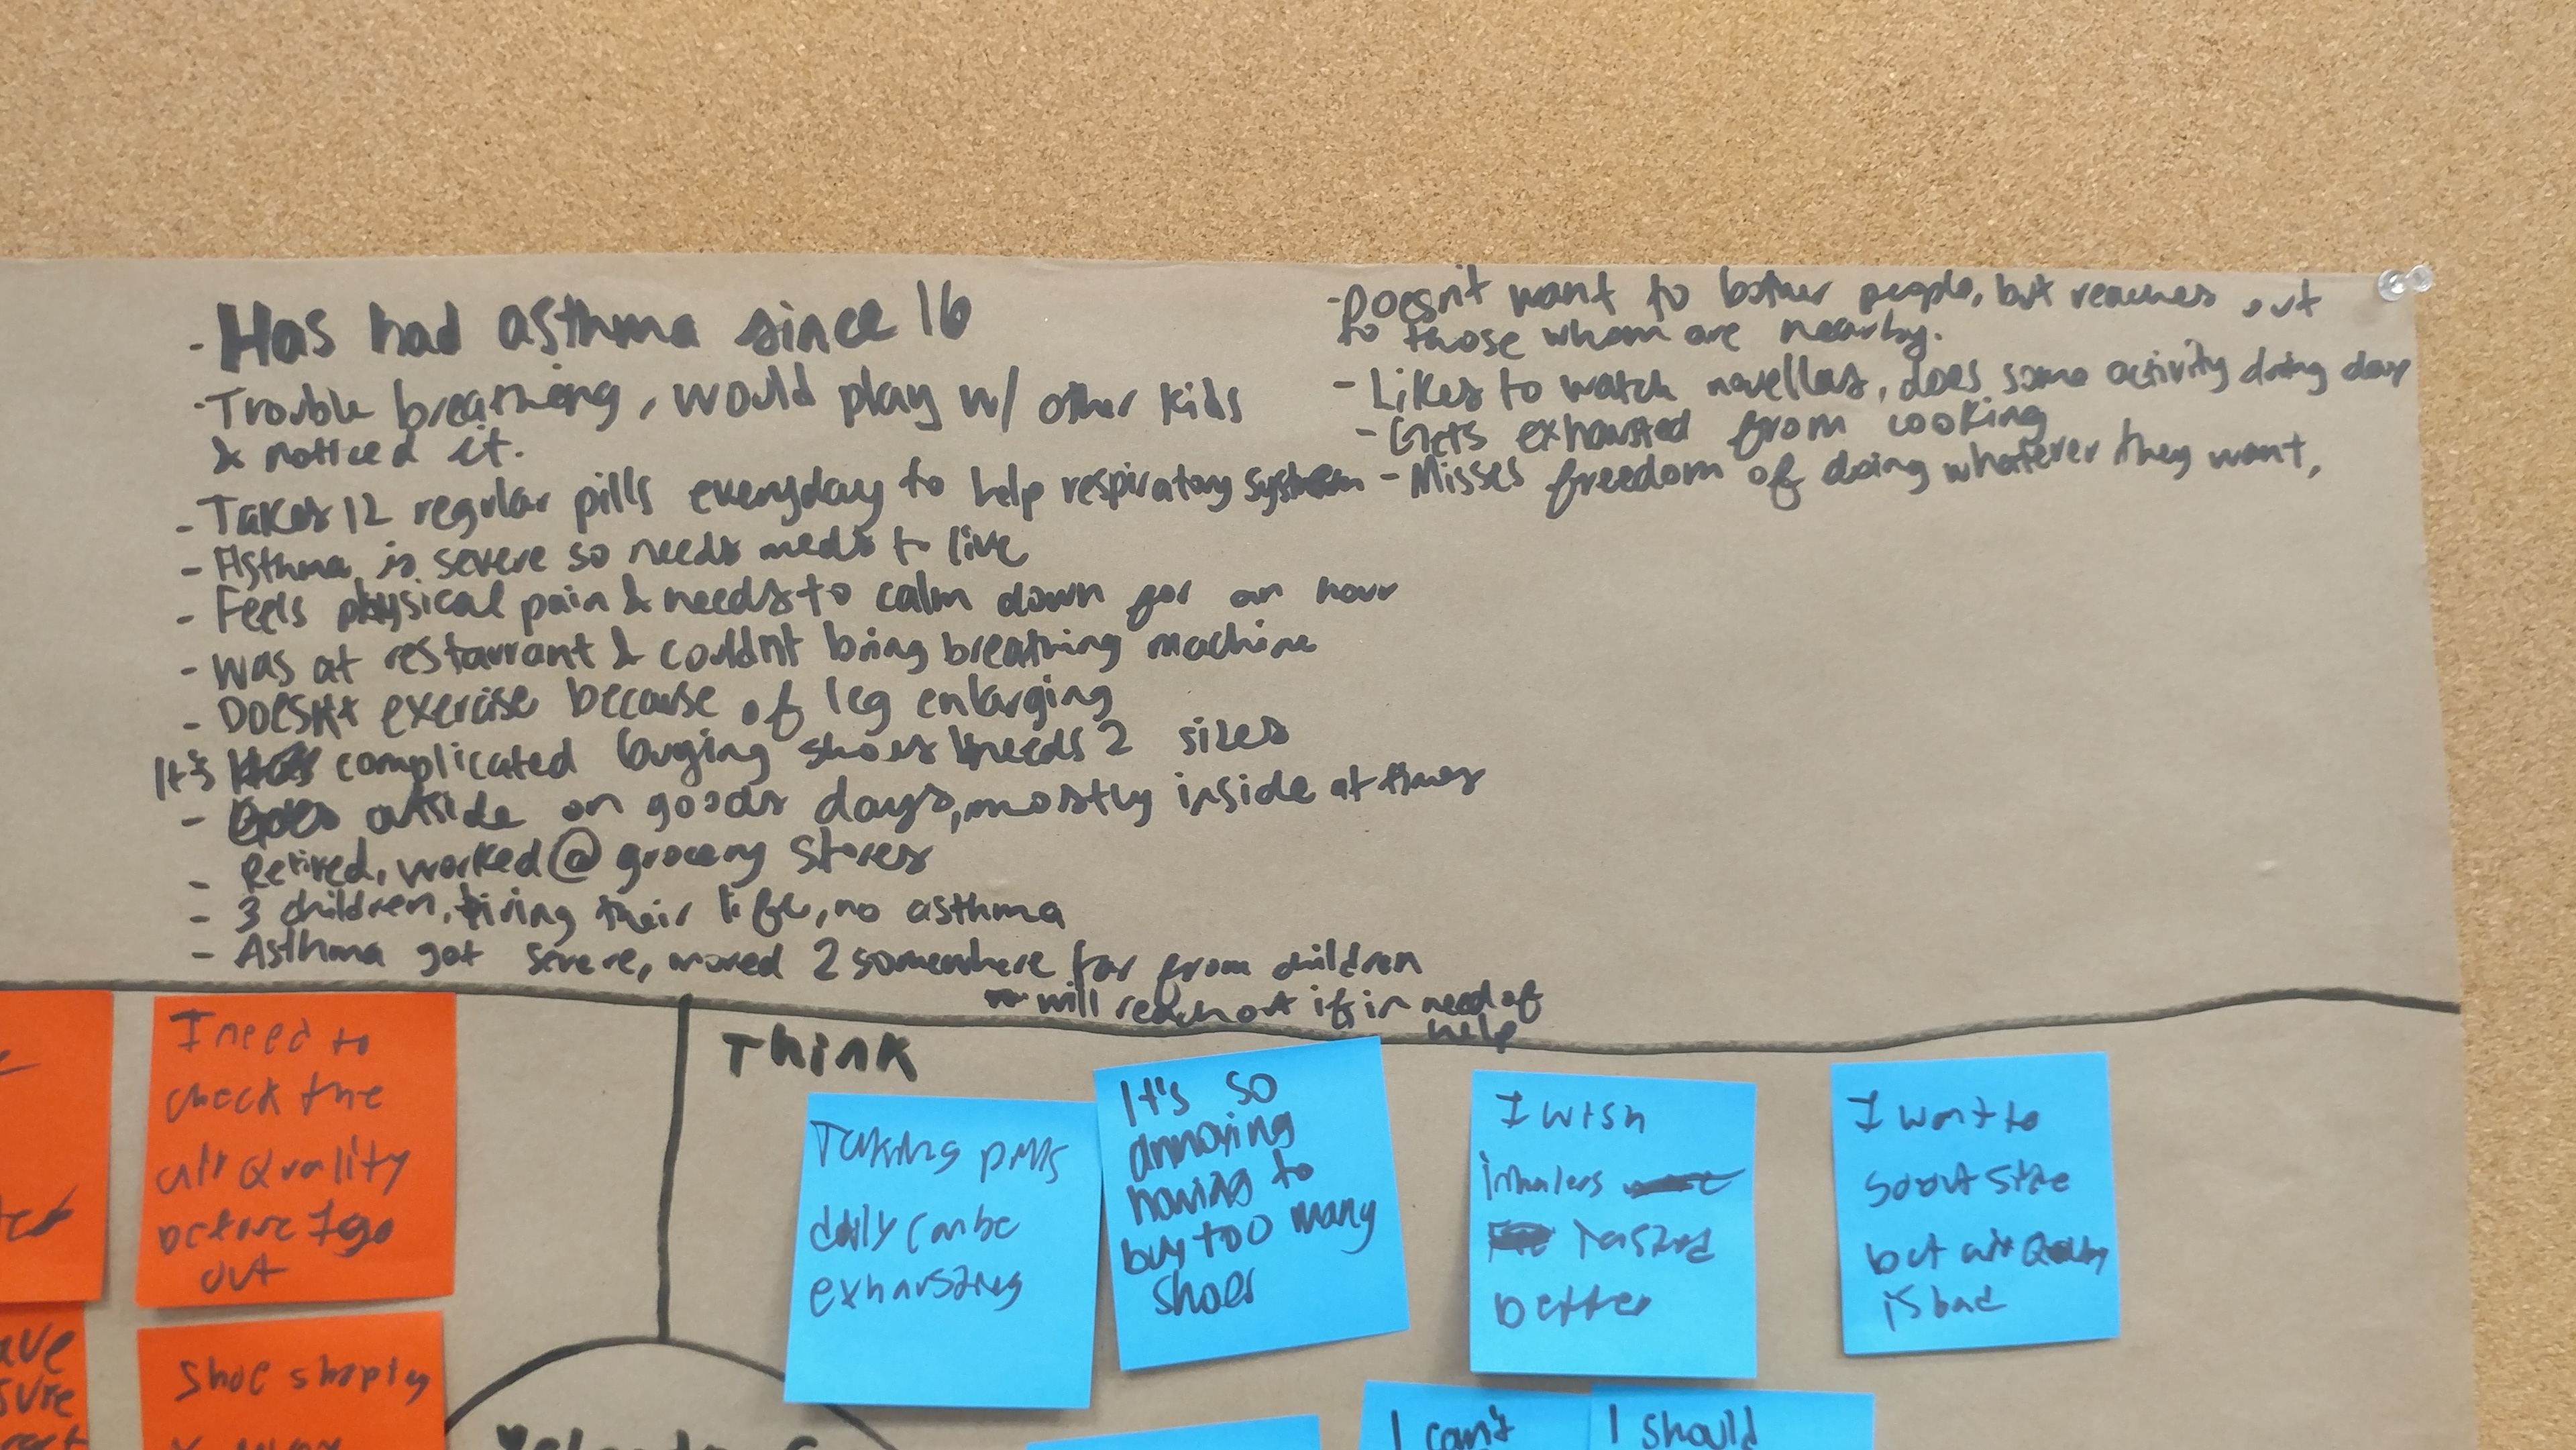 - Has had asthma since 16
- Trouble breathing, would play w/ other kids
& noticed it.
- Takes 12 regular pills everyday to help respiratory system
- Asthma is severe so needs meds to live
- Feels physical pain & needs to calm down for an hour
- Was at restaurant & couldn't bring breathing machine
- Doesn't exercise because of leg enlarging
It's complicated buying shoes needs 2 sizes
- Goes outside on goods days, mostly inside at times
- Retired, worked @ grocery stores
- 3 children, their life, no asthma
- Asthma got severe, moved 2 somewhere far from children
will reach out if in need of
help
- Doesn't want to bother people, but reaches out
to those whom are nearby.
- Likes to watch novellas, does some activity day
- Gets exhausted from cooking
- Misses freedom of doing whatever they want,
I need to
check the
air Quality
before I go
out
Shoe
Think
Taking pills
daily can be
exhausting
It's so
annoying
having to
buy too many
shoes
I wish
inhalers
tasted
better
I want to
go outside
but air Quality
is bad
I can't
I should